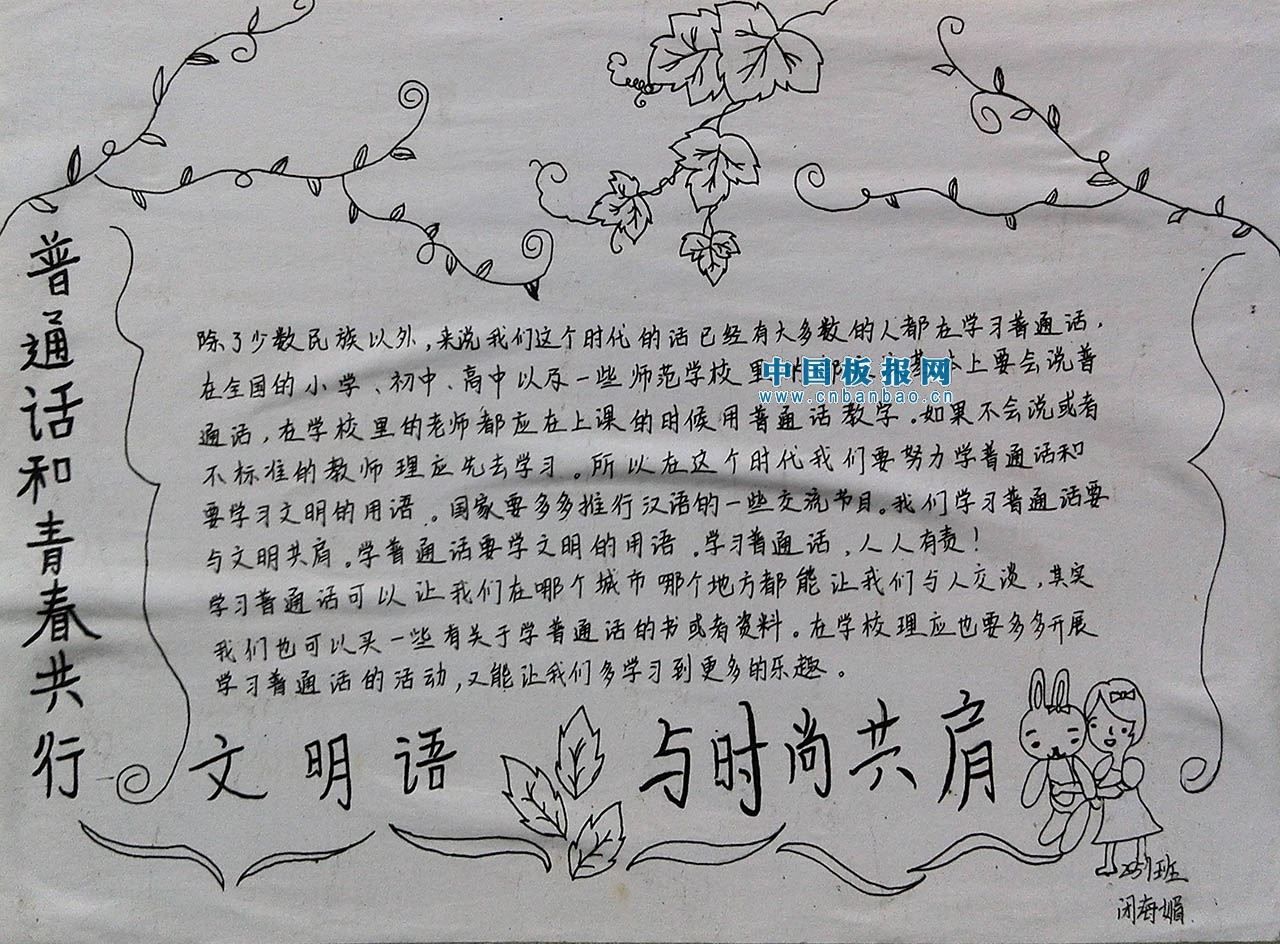 普通话和青春共行
除了少数民族以外，来说我们这个时代的话已经有大多数的人都在学习普通话，
在全国的小学、初中、高中以及一些师范学校里 上要会说普
中国板报网
www.cnbanbao.cn
通话，在学校里的老师都应在上课的时候用普通话教学。如果不会说或者
不标准的教师理应先去学习。所以在这个时代我们要努力学普通话和
要学习文明的用语。国家要多多推行汉语的一些交流节目。我们学习普通话要
与文明共肩。学普通话要学文明的用语。学习普通话，人人有责！
学习普通话可以让我们在哪个城市哪个地方都能让我们与人交谈，其实
我们也可以买一些有关于学普通话的书或者资料。在学校理应也要多多开展
学习普通话的活动，又能让我们多学习到更多的乐趣。
文明语 与时尚共肩
班
闭海媚